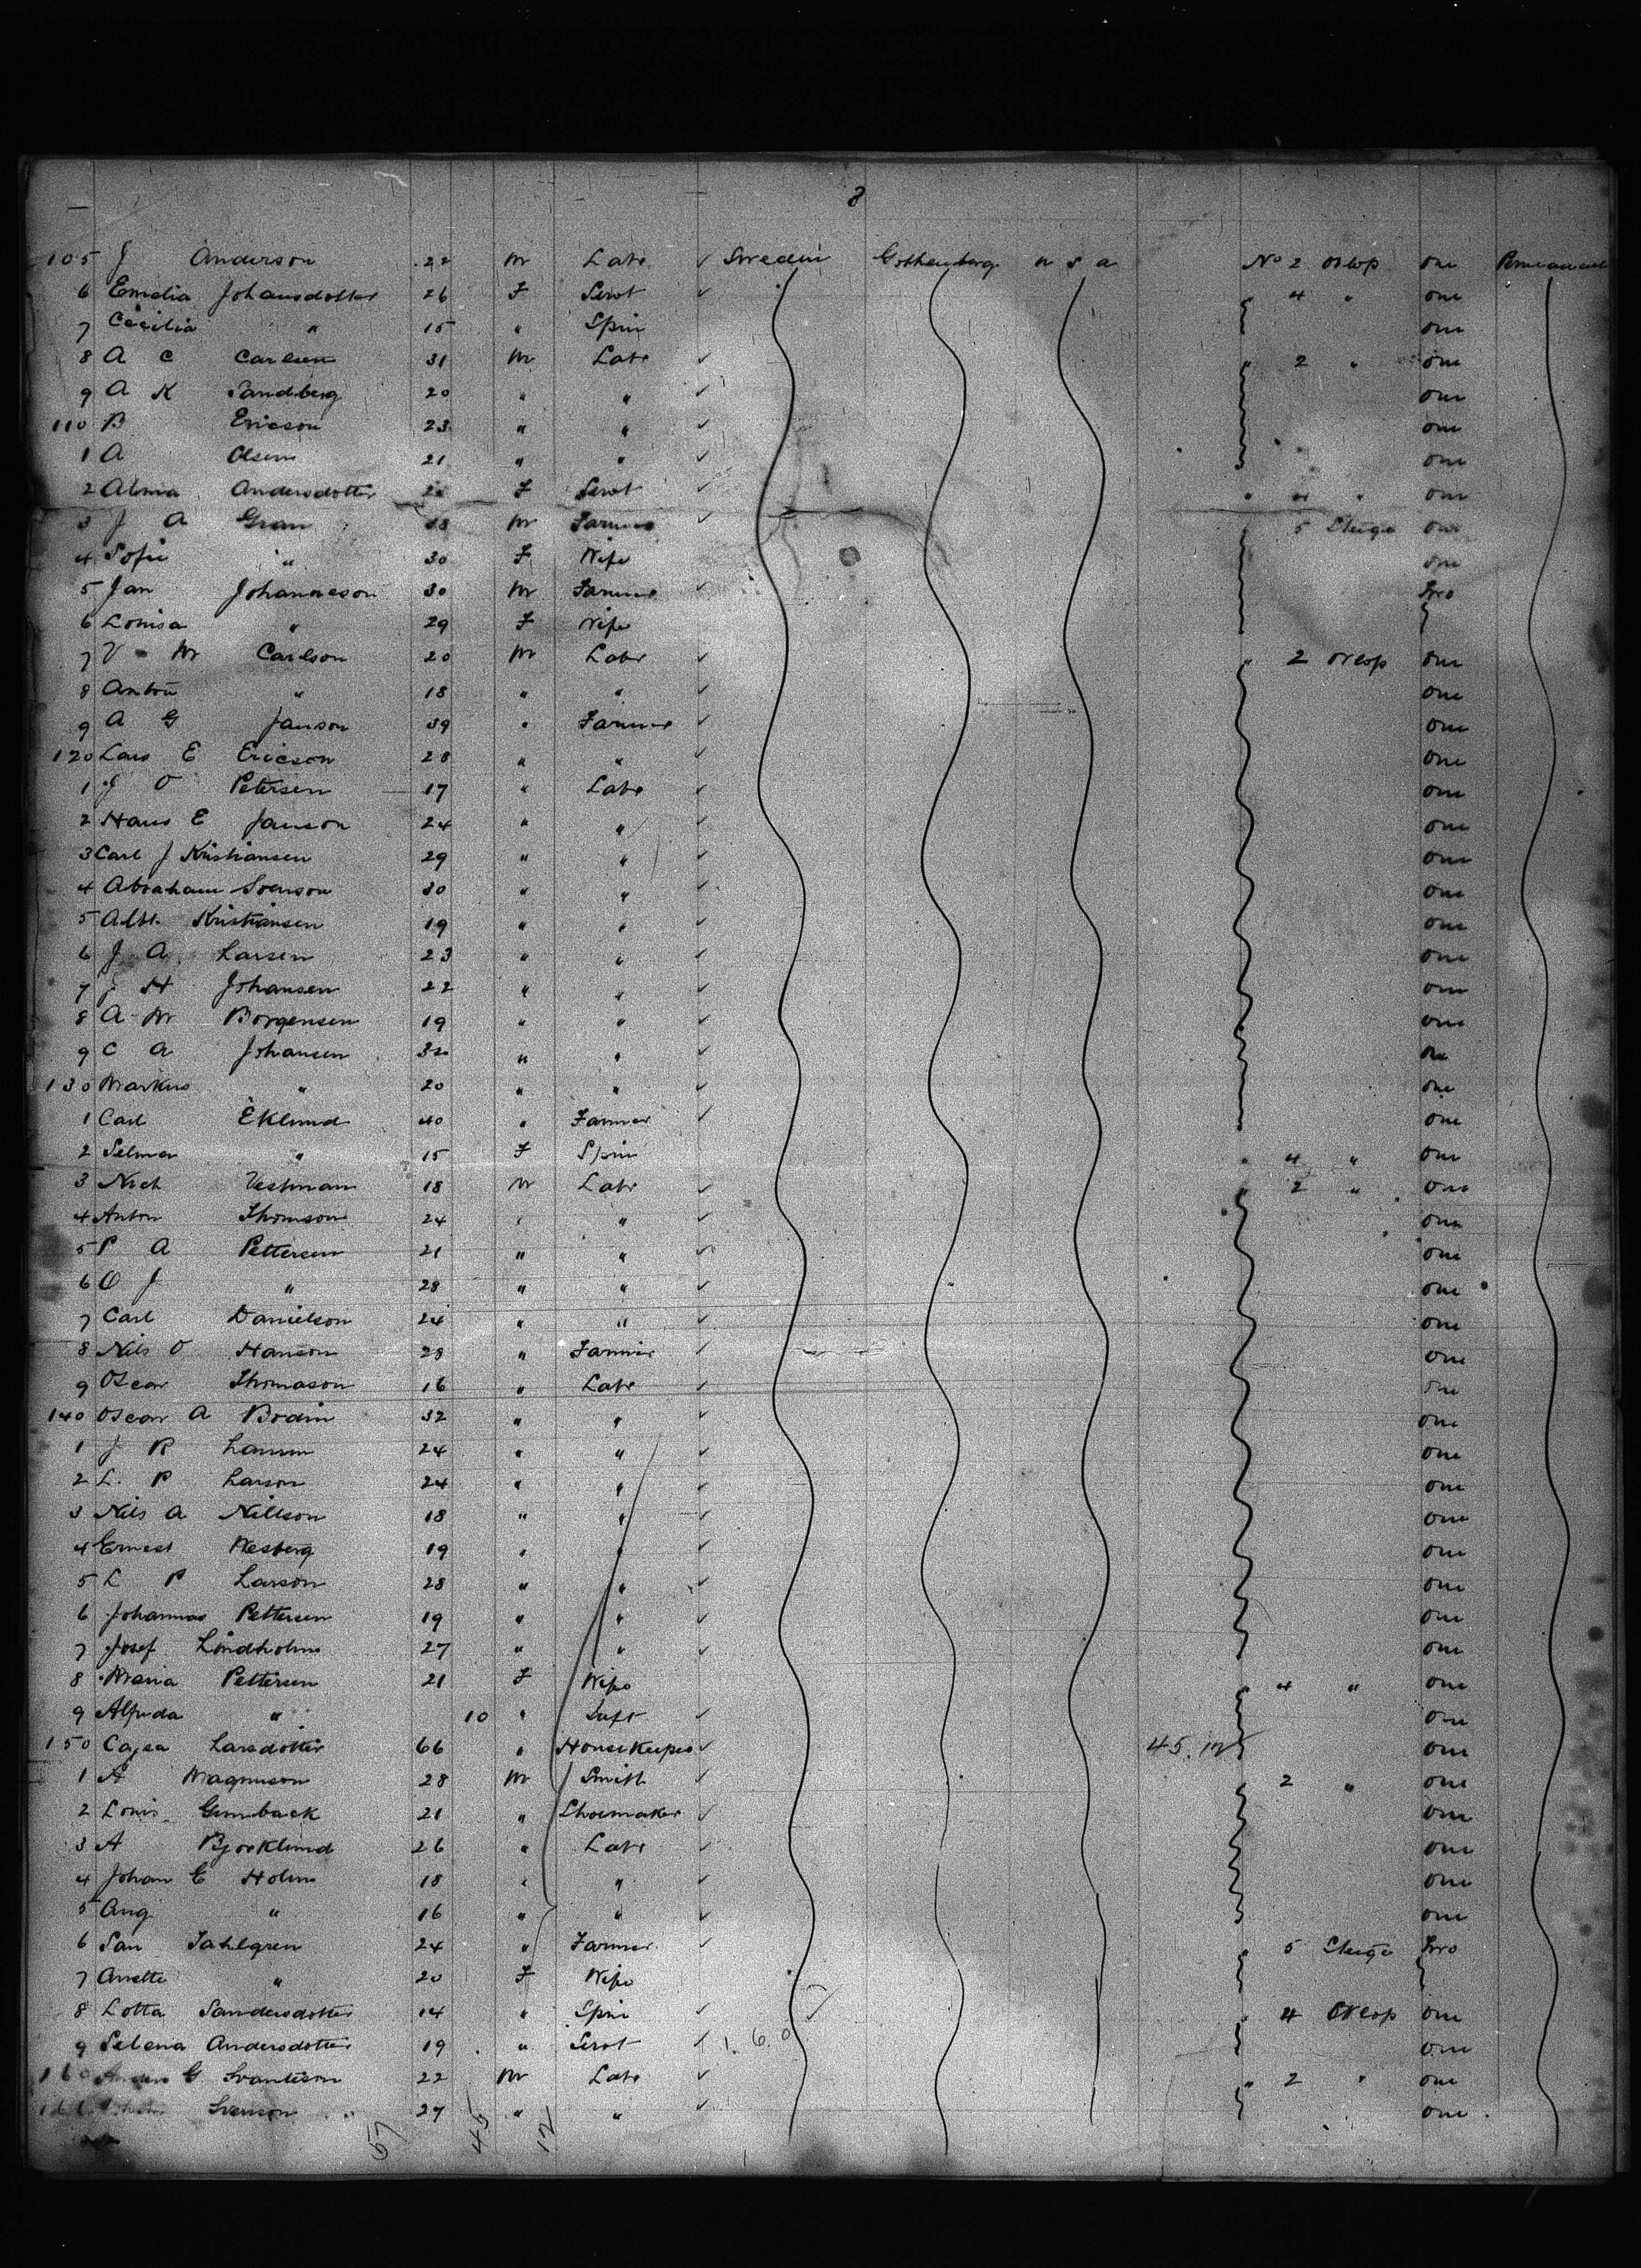 3
105 J Anderson 22 M Labr ✓ Sweden Gothenburg U S A No 2 Orlop one Permanent
6 Emelia Johansdotter 26 F Servt ✓ " 4 " one
7 Cecilia " 15 " Spin one
8 A C Carlsen 31 M Labr ✓ " 2 " one
9 A K Sandberg 20 " " ✓ one
110 B Ericson 23 " " ✓ one
1 A Olsen 21 " " ✓ one
2 Alma Andersdotter F Servt ✓ " 4 " one
3 J A Gran 38 M Farmer ✓ 5 Steige one
4 Sofie " 30 F Wife one
5 Jan Johanneson 30 M Farmer ✓ Two
6 Louisa " 29 F Wife
7 V M Carlson 20 M Labr ✓ " 2 Orlop one
8 Anton " 18 " " ✓ one
9 A G Janson 39 " Farmer ✓ one
120 Lars E Ericson 28 " " ✓ one
1 J O Petersen 17 " Labr ✓ one
2 Hans E Janson 24 " " ✓ one
3 Carl J Kristiansen 29 " " ✓ one
4 Abraham Svenson 30 " " ✓ one
5 Albt. Kristiansen 19 " " ✓ one
6 J A Larsen 23 " " ✓ one
7 J H Johansen 22 " " ✓ one
8 A M Borgensen 19 " " ✓ one
9 C A Johansen 32 " " ✓ one
130 Markus " 20 " " ✓ one
1 Carl Eklund 40 " Farmer ✓ one
2 Selma " 15 F Spin " 4 " one
3 Nich Vestman 18 M Labr ✓ " 2 " one
4 Anton Thomson 24 " " ✓ one
5 P A Pettersen 21 " " ✓ one
6 O J " 28 " " ✓ one
7 Carl Danielson 24 " " ✓ one
8 Nils O Hanson 28 " Farmer ✓ one
9 Oscar Thomason 16 " Labr ✓ one
140 Oscar A Bodin 32 " " ✓ one
1 J B Larsen 24 " " ✓ one
2 L. P Larson 24 " " ✓ one
3 Nils A Nillson 18 " " ✓ one
4 Ernest Wesberg 19 " " ✓ one
5 L P Larson 28 " " ✓ one
6 Johannas Pettersen 19 " " ✓ one
7 Josef Lindholm 27 " " ✓ one
8 Maria Pettersen 21 F Wife " 4 " one
9 Alfrida " 10 " ✓ one
150 Cajsa Larsdotter 66 " Housekeeper ✓ 45.12 one
1 A Magnuson 28 M Smith ✓ 2 " one
2 Louis Gunback 21 " Shoemaker ✓ one
3 A Bjorklund 26 " Labr ✓ one
4 Johan E Holm 18 " " ✓ one
5 Aug " 16 " " ✓ one
6 San Tahlgren 24 " Farmer ✓ " 5 Steige Two
7 Anette " 20 F Wife
8 Lotta Sandersdotter 14 " Spin ✓ " 4 Orlop one
9 Selena Andersdotter 19 " Servt ✓ 1. 6. 0 one
160 Anders G Svanteson 22 M Labr ✓ " 2 " one
161 Svenson 27 " " ✓ one
57 45 12